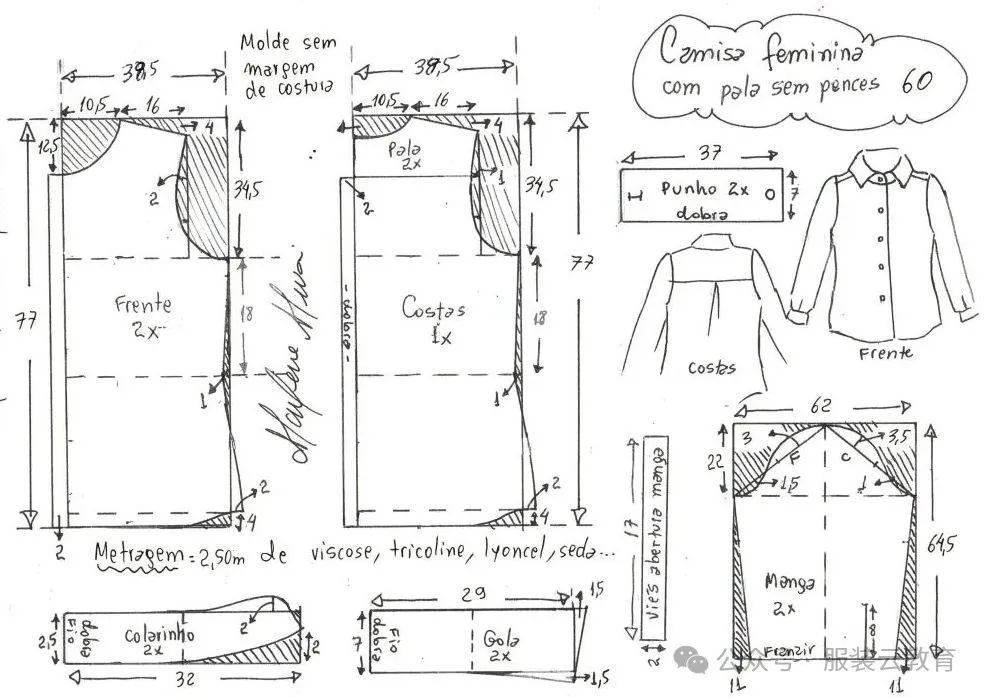 Molde sem
margem
de costura
Camisa feminina
com pala sem pences 60
38,5
10,5
16
4
12,5
2
34,5
77
Frente
2x
18
1
2
4
2
38,5
10,5
16
4
Pala
2x
1
2
34,5
77
Costas
1x
- dobra -
18
1
2
4
Marlene Mura
37
Punho 2x
dobra
7
Costas
Frente
Metragem = 2,50m de viscose, tricoline, lyoncel, seda...
2,5
fio
dobra
Colarinho
2x
2
2
32
29
7
fio
dobra
Gola
2x
1,5
1,5
17
viés abertura manga
2
62
22
3
F
C
3,5
1,5
1
64,5
Manga
2x
8
Franzir
11
11
公众号 · 服装云教育